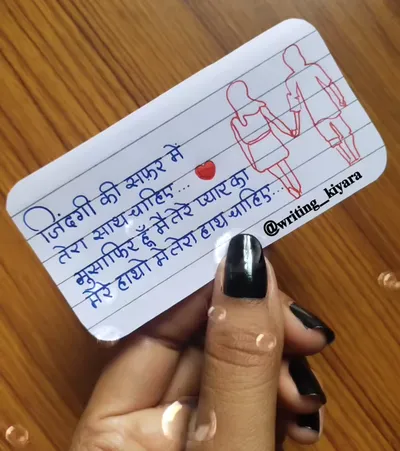 जिंदगी की सफ़र में
तेरा साथ चाहिए...
मुसाफिर हूँ मैं तेरे प्यार का
मेरे हाथो मे तेरा हाथ चाहिए...
@writing_kiyara